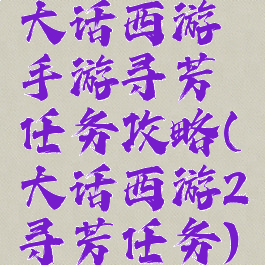 大话西游
手游寻芳
任务攻略(
大话西游2
寻芳任务)